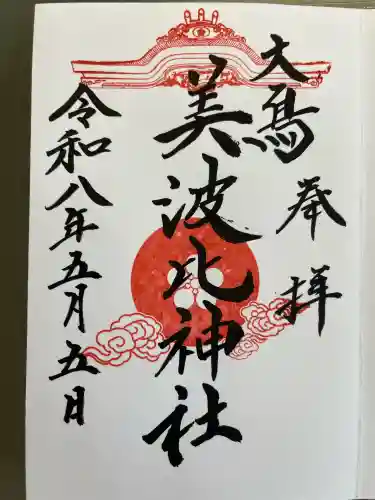 大鳥
奉拝
美波比神社
令和八年五月五日